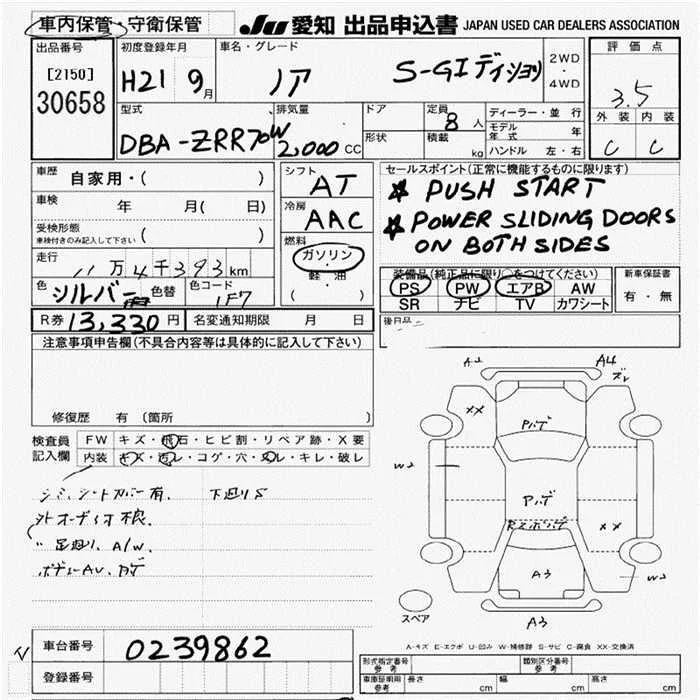 車内保管・守衛保管
JU 愛知 出品申込書 JAPAN USED CAR DEALERS ASSOCIATION
出品番号
[2150]
30658
初度登録年月
H21 9月
車名・グレード
ノア S-Gエディション
2WD
・
4WD
評価点
3.5
外装 内装
C C
型式
DBA-ZRR70W
排気量
2,000 CC
ドア
形状
定員
8 人
積載
kg
ディーラー・並行
モデル年式 年
ハンドル 左・右
車歴
自家用・( )
車検
年 月( 日)
受検形態
車検付きのみ記入して下さい ( )
走行
11万4千393km
色
シルバー 色替
色コード
1F7
シフト
AT
冷房
AAC
燃料
ガソリン
・
軽・油
( )
セールスポイント(正常に機能するものに限ります)
★ PUSH START
★ POWER SLIDING DOORS
ON BOTH SIDES
装備品(純正品に限り○をつけてください)
PS PW エアB AW
SR ナビ TV カワシート
新車保証書
有・無
後日品
R券 13,330 円
名変通知期限 月 日
注意事項申告欄(不具合内容等は具体的に記入して下さい)
修復歴 有 〔箇所
検査員
記入欄
FW キズ・飛石・ヒビ割・リペア跡・X要
内装 キズ・汚レ・コゲ・穴・スレ・キレ・破レ
シミ、シートカバー有、 下廻りS
外オーディオ不良、
〃 足廻り、A/W、
A2
A4
ズレ
XX
W2
XX
W2
A3
A3
スペア
A-キズ E-エクボ U-凹み W-補修跡 S-サビ C-腐食 XX-交換済
車台番号
0239862
登録番号
形式指定番号
参考
類別区分番号
参考
車庫証明用
参考
長さ cm 幅 cm 高さ cm